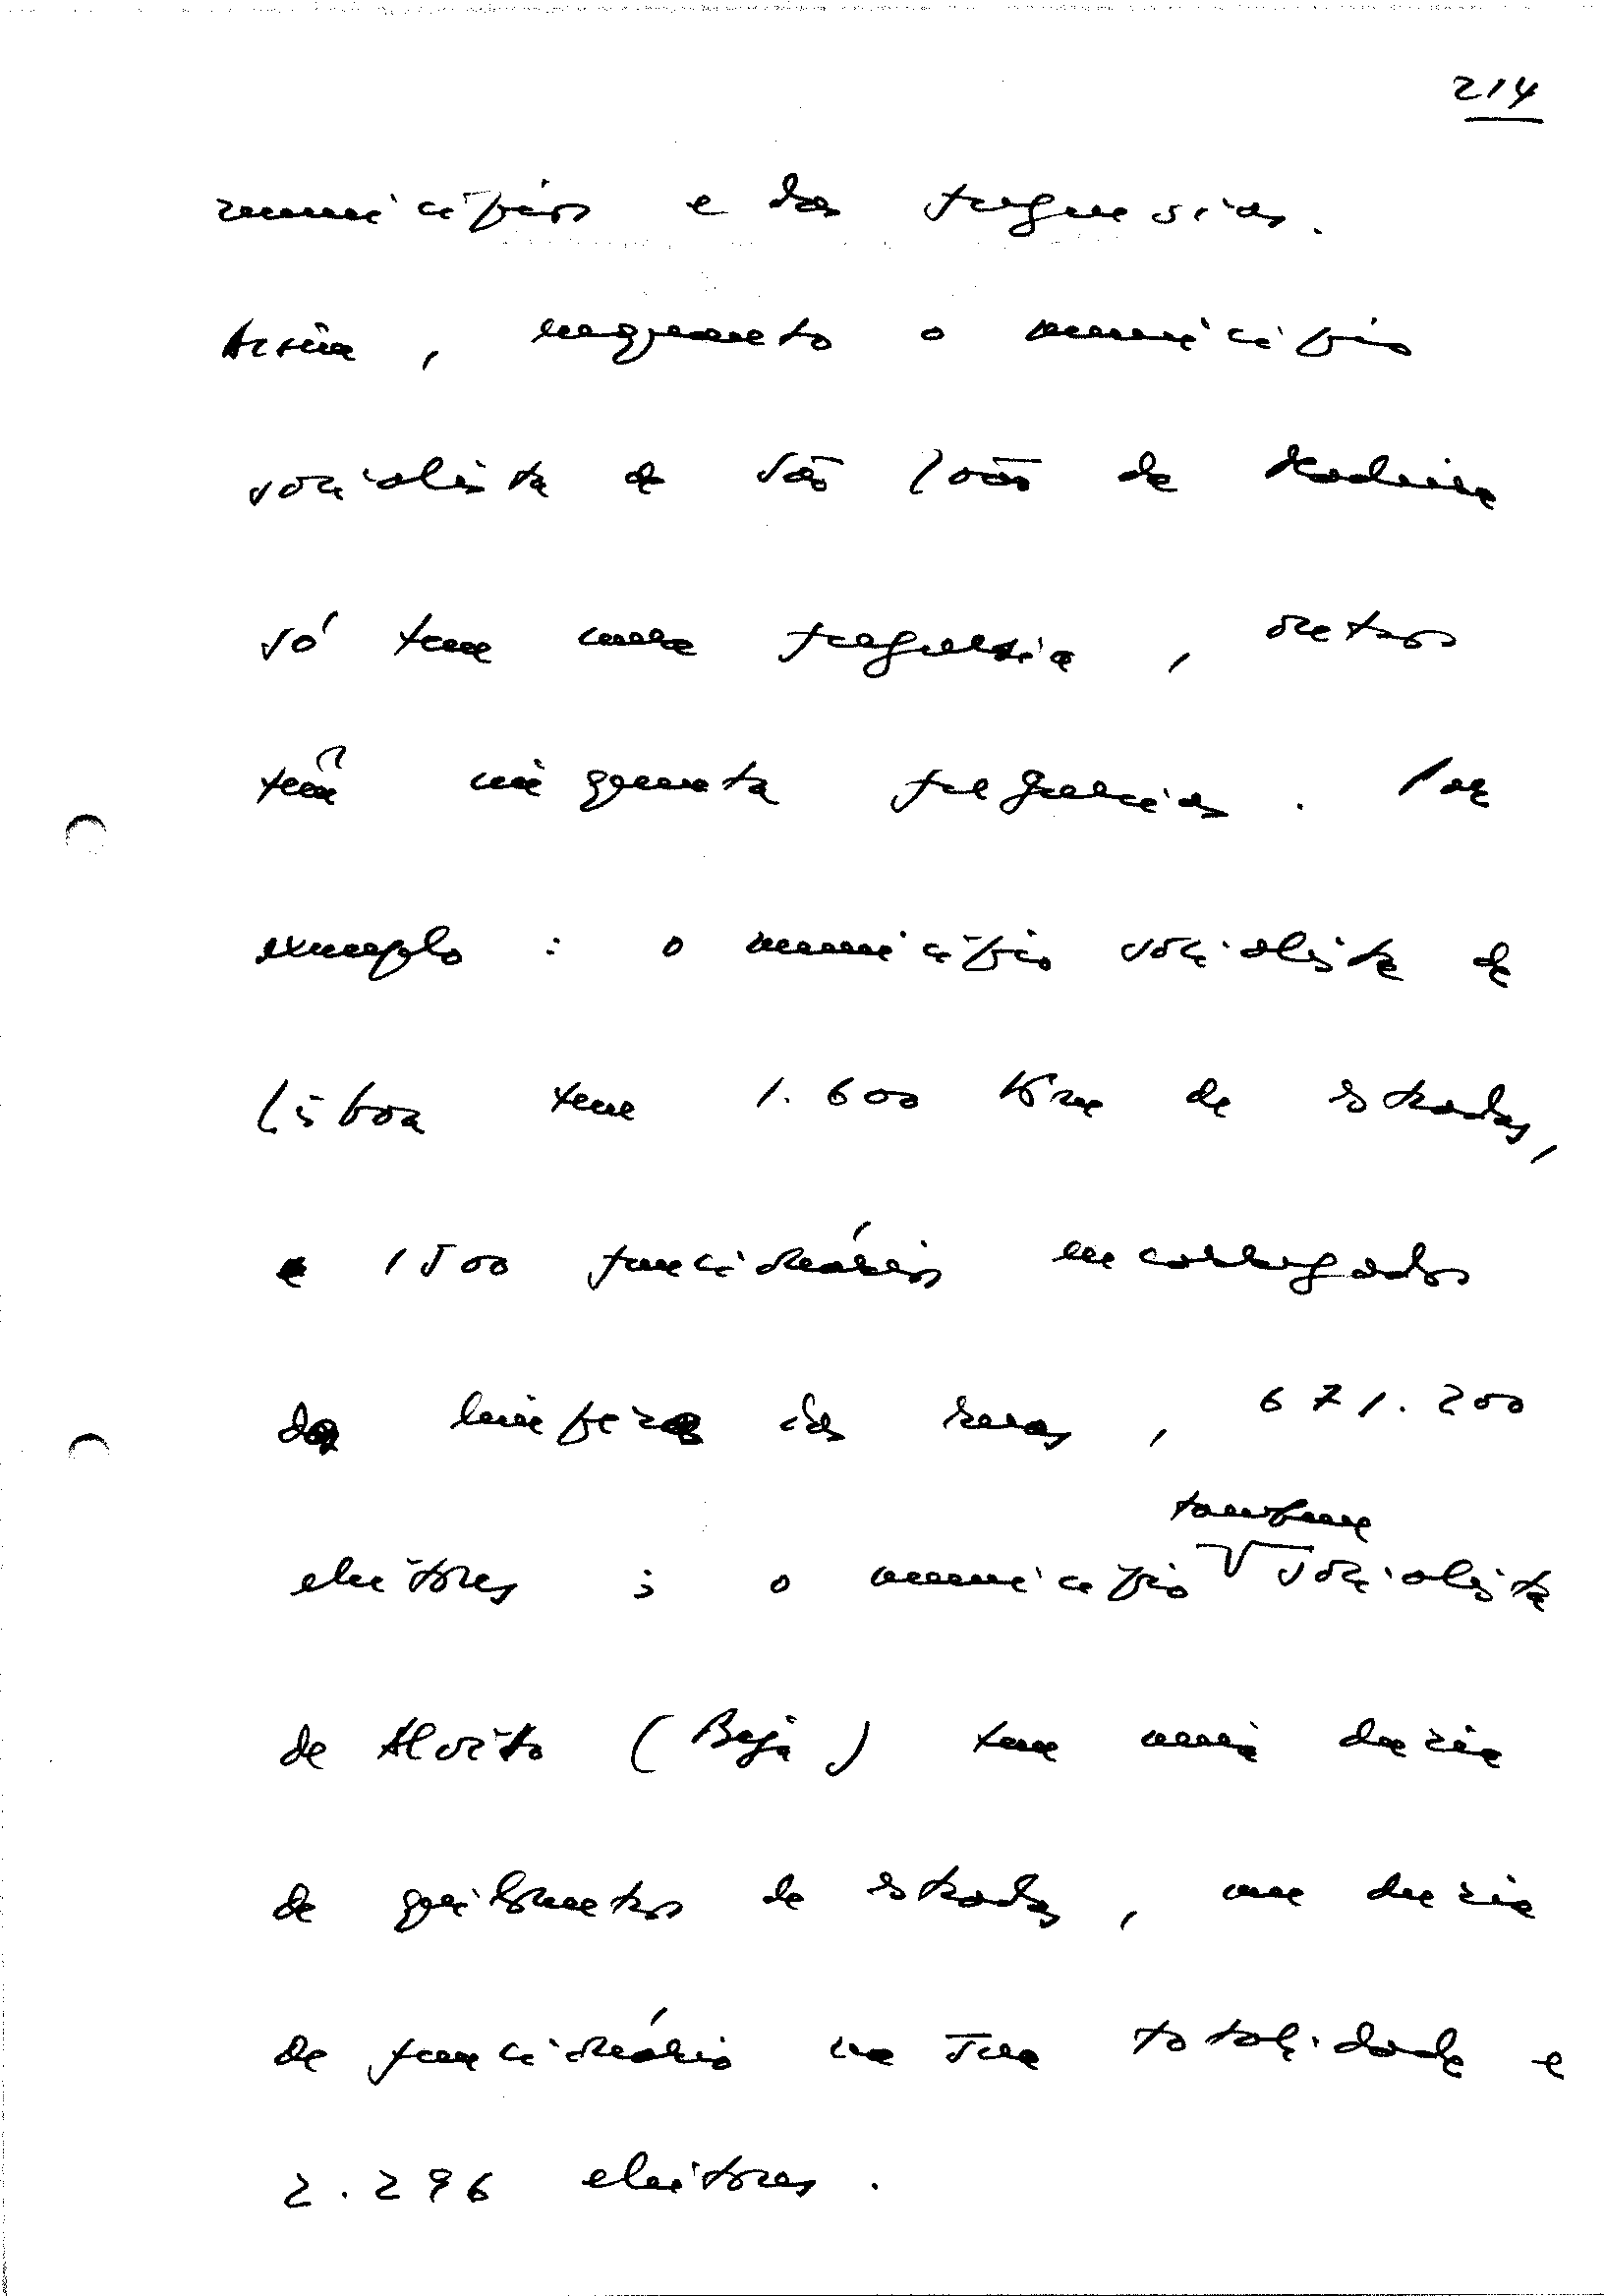 214
municípios e das freguesias.
Assim, enquanto o município
socialista de São João da Madeira
só tem uma freguesia, outros
têm cinquenta freguesias. Por
exemplo: o município socialista de
Lisboa tem 1.600 Km de estradas,
e 1500 funcionários encarregados
da limpeza das ruas, 671.200
também
eleitores; o município socialista
de Alvito (Beja) tem uma dúzia
de quilometros de estradas, uma dúzia
de funcionários na sua totalidade e
2.296 eleitores.